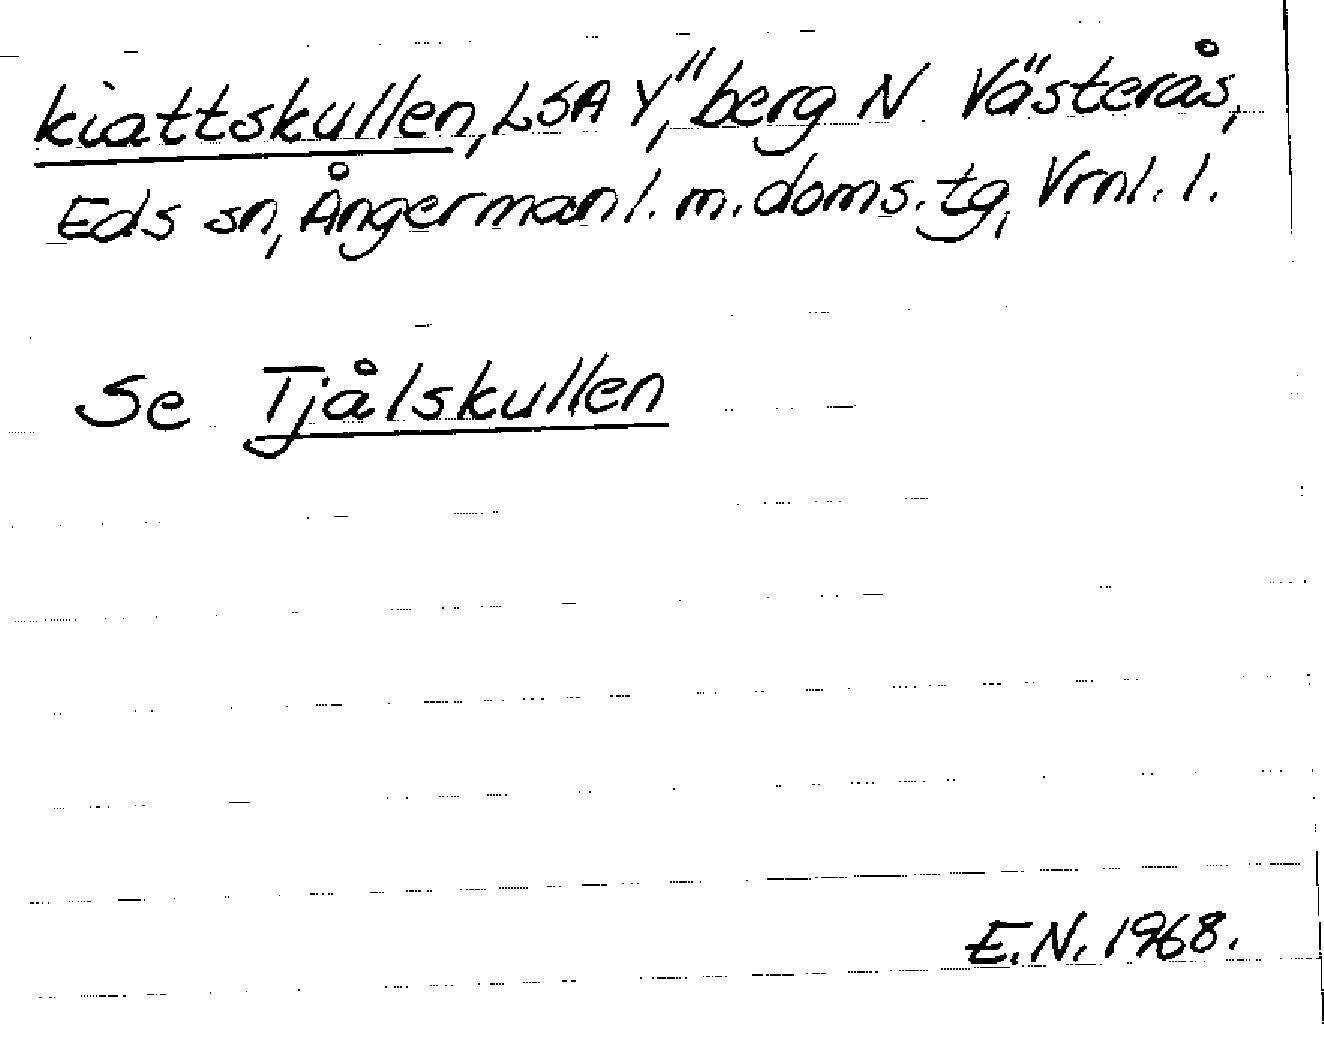 kiattskullen, LSA Y", berg N Västerås,
Eds sn, Ångermanl. m. doms. tg, Vrnl. l.
Se Tjålskullen
E.N. 1968.